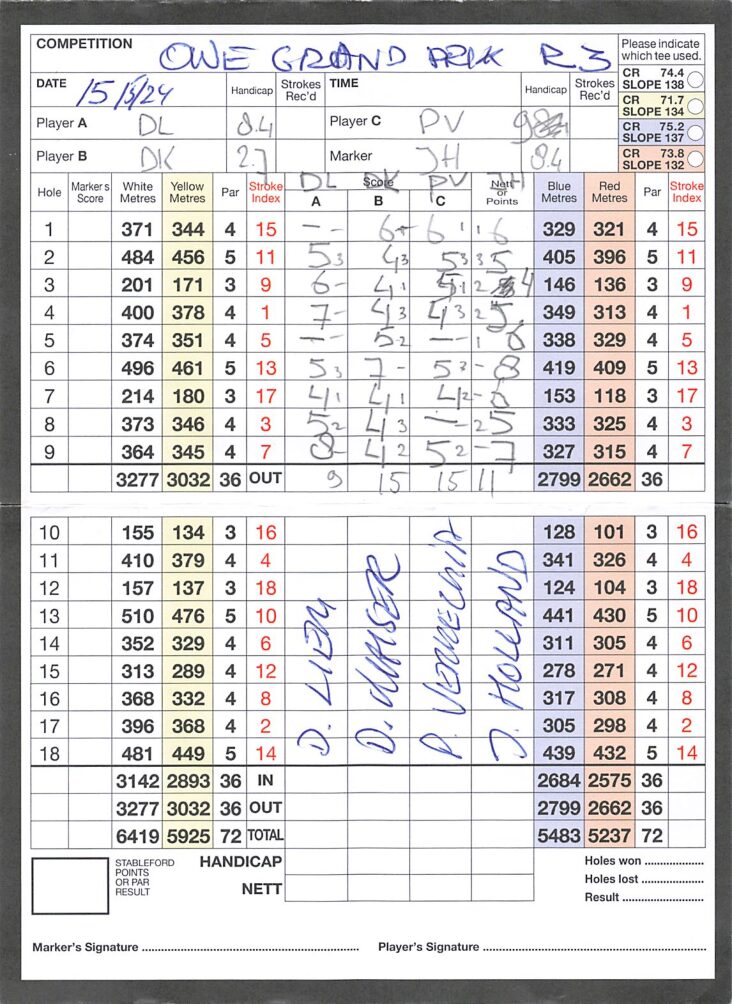 COMPETITION OWE GRAND PRIX R3
Please indicate which tee used.
DATE 15/8/24 Handicap Strokes Rec'd TIME Handicap Strokes Rec'd
CR 74.4 SLOPE 138
CR 71.7 SLOPE 134
CR 75.2 SLOPE 137
CR 73.8 SLOPE 132
Player A DL 8.4 Player C PV
Player B DK 2.7 Marker JH 8.4
DL DK PV JH
Hole Marker's Score White Metres Yellow Metres Par Stroke Index Score A B C Nett or Points Blue Metres Red Metres Par Stroke Index
1 371 344 4 15 - - 6 - 6 1 1 6 329 321 4 15
2 484 456 5 11 5 3 4 3 5 3 3 5 405 396 5 11
3 201 171 3 9 6 - 4 1 5 1 2 4 146 136 3 9
4 400 378 4 1 7 - 4 3 4 3 2 5 349 313 4 1
5 374 351 4 5 - - 5 2 - - 1 6 338 329 4 5
6 496 461 5 13 5 3 7 - 5 3 - 8 419 409 5 13
7 214 180 3 17 4 1 4 1 4 2 - 153 118 3 17
8 373 346 4 3 5 2 4 3 - - 2 5 333 325 4 3
9 364 345 4 7 8 - 4 2 5 2 - 7 327 315 4 7
3277 3032 36 OUT 9 15 15 11 2799 2662 36
10 155 134 3 16 128 101 3 16
11 410 379 4 4 341 326 4 4
12 157 137 3 18 124 104 3 18
13 510 476 5 10 441 430 5 10
14 352 329 4 6 311 305 4 6
15 313 289 4 12 278 271 4 12
16 368 332 4 8 317 308 4 8
17 396 368 4 2 305 298 4 2
18 481 449 5 14 439 432 5 14
D.
D.
P.
J. HOLLAND
3142 2893 36 IN 2684 2575 36
3277 3032 36 OUT 2799 2662 36
6419 5925 72 TOTAL 5483 5237 72
STABLEFORD POINTS OR PAR RESULT
HANDICAP
NETT
Holes won
Holes lost
Result
Marker's Signature Player's Signature